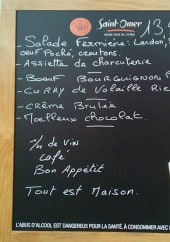 Saint-Omer
13,
Salade Fermière: Lardon,
oeuf Poché, croutons.
- Assiette de charcuterie
- Boeuf Bourguignon, P
- Curray de Volaille Riz
- Crème Brulée
- Moelleux chocolat.
1/4 de vin
Café
Bon Appétit
Tout est Maison.
L'ABUS D'ALCOOL EST DANGEREUX POUR LA SANTÉ, À CONSOMMER AVEC